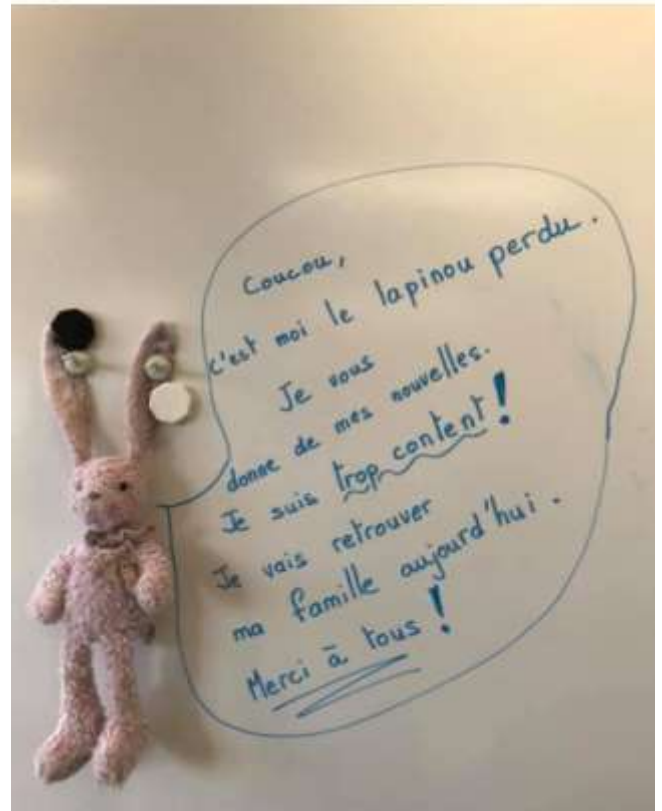 Coucou,
c'est moi le lapinou perdu.
Je vous
donne de mes nouvelles.
Je suis trop content !
Je vais retrouver
ma famille aujourd'hui.
Merci à tous !